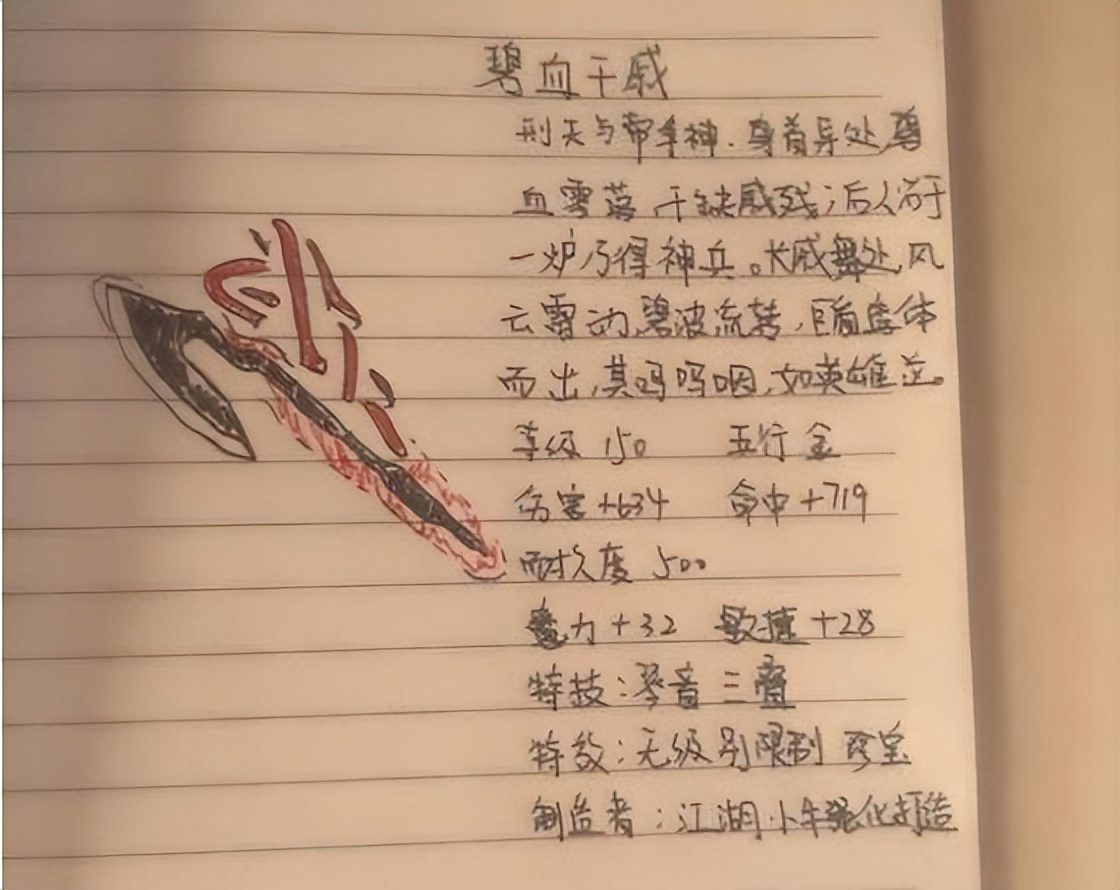 碧血干戚
刑天与帝争神.身首异处,尊
血零落,干缺戚残;后人治于
一炉乃得神兵。长戚舞处,风
云雷动,碧波流转,巨盾虚体
而出,其呜呜咽,如英雄泣。
等级 150 五行 金
伤害+634 命中+719
耐久度 500
魔力+32 敏捷+28
特技:琴音三叠
特效:无级别限制 珍宝
制造者:江湖小牛强化打造